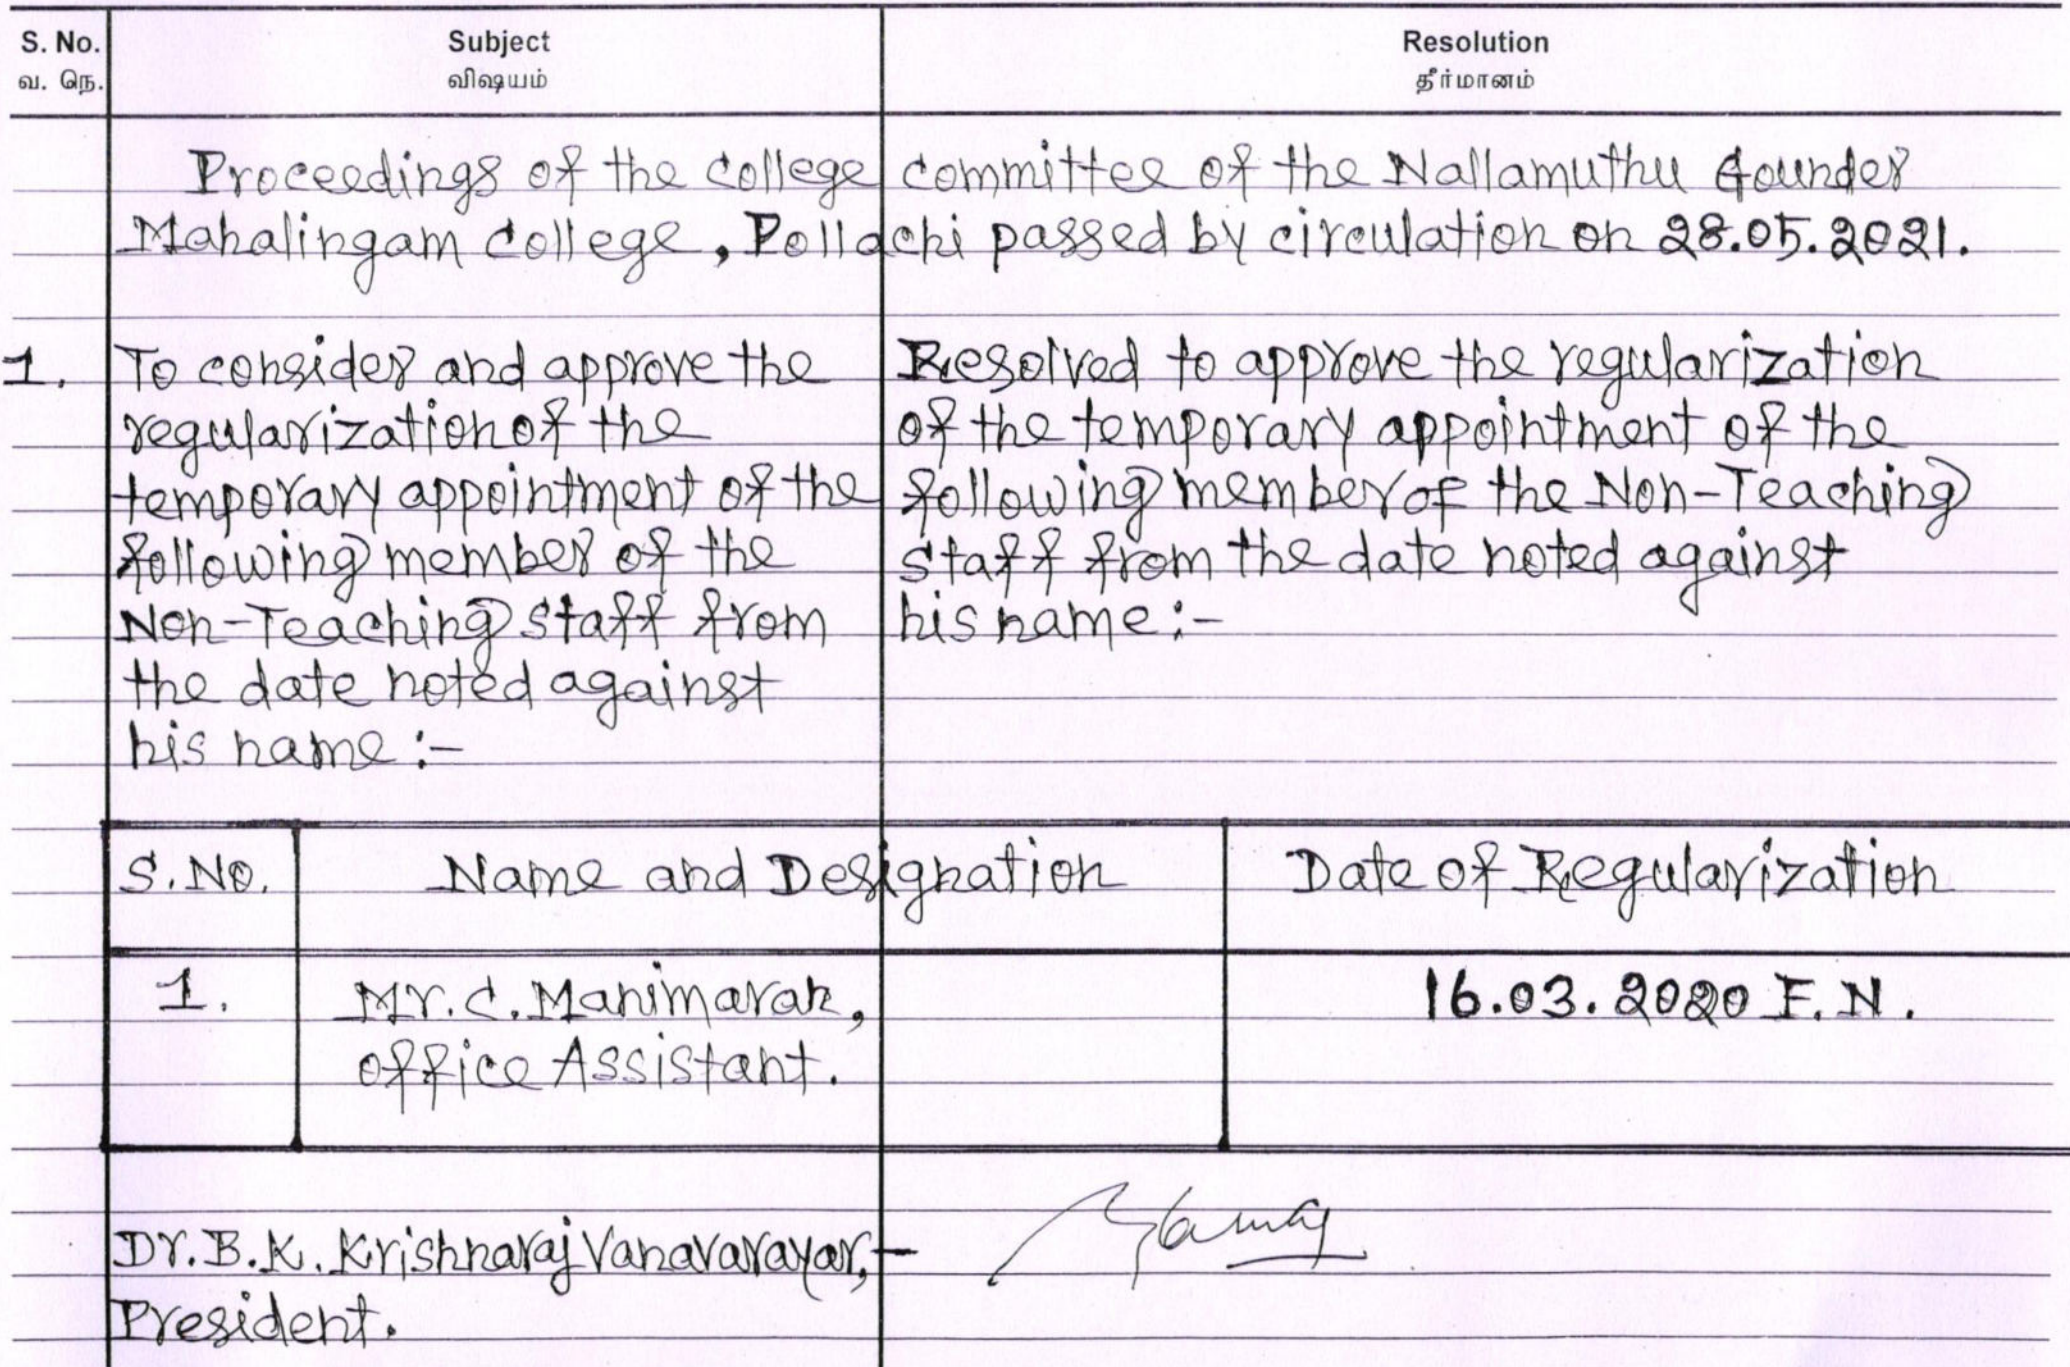 S. No. Subject Resolution
வ. நெ. விஷயம் தீர்மானம்
Proceedings of the college committee of the Nallamuthu Gounder
Mahalingam college, Pollachi passed by circulation on 28.05.2021.
1. To consider and approve the
regularization of the
temporary appointment of the
following member of the
Non-Teaching staff from
the date noted against
his name :-
Resolved to approve the regularization
of the temporary appointment of the
following member of the Non-Teaching
staff from the date noted against
his name :-
S.No. Name and Designation Date of Regularization
1. Mr. C. Manimaran, 16.03.2020 F.N.
office Assistant.
Dr. B.K. Krishnaraj Vanavarayar, -
President.